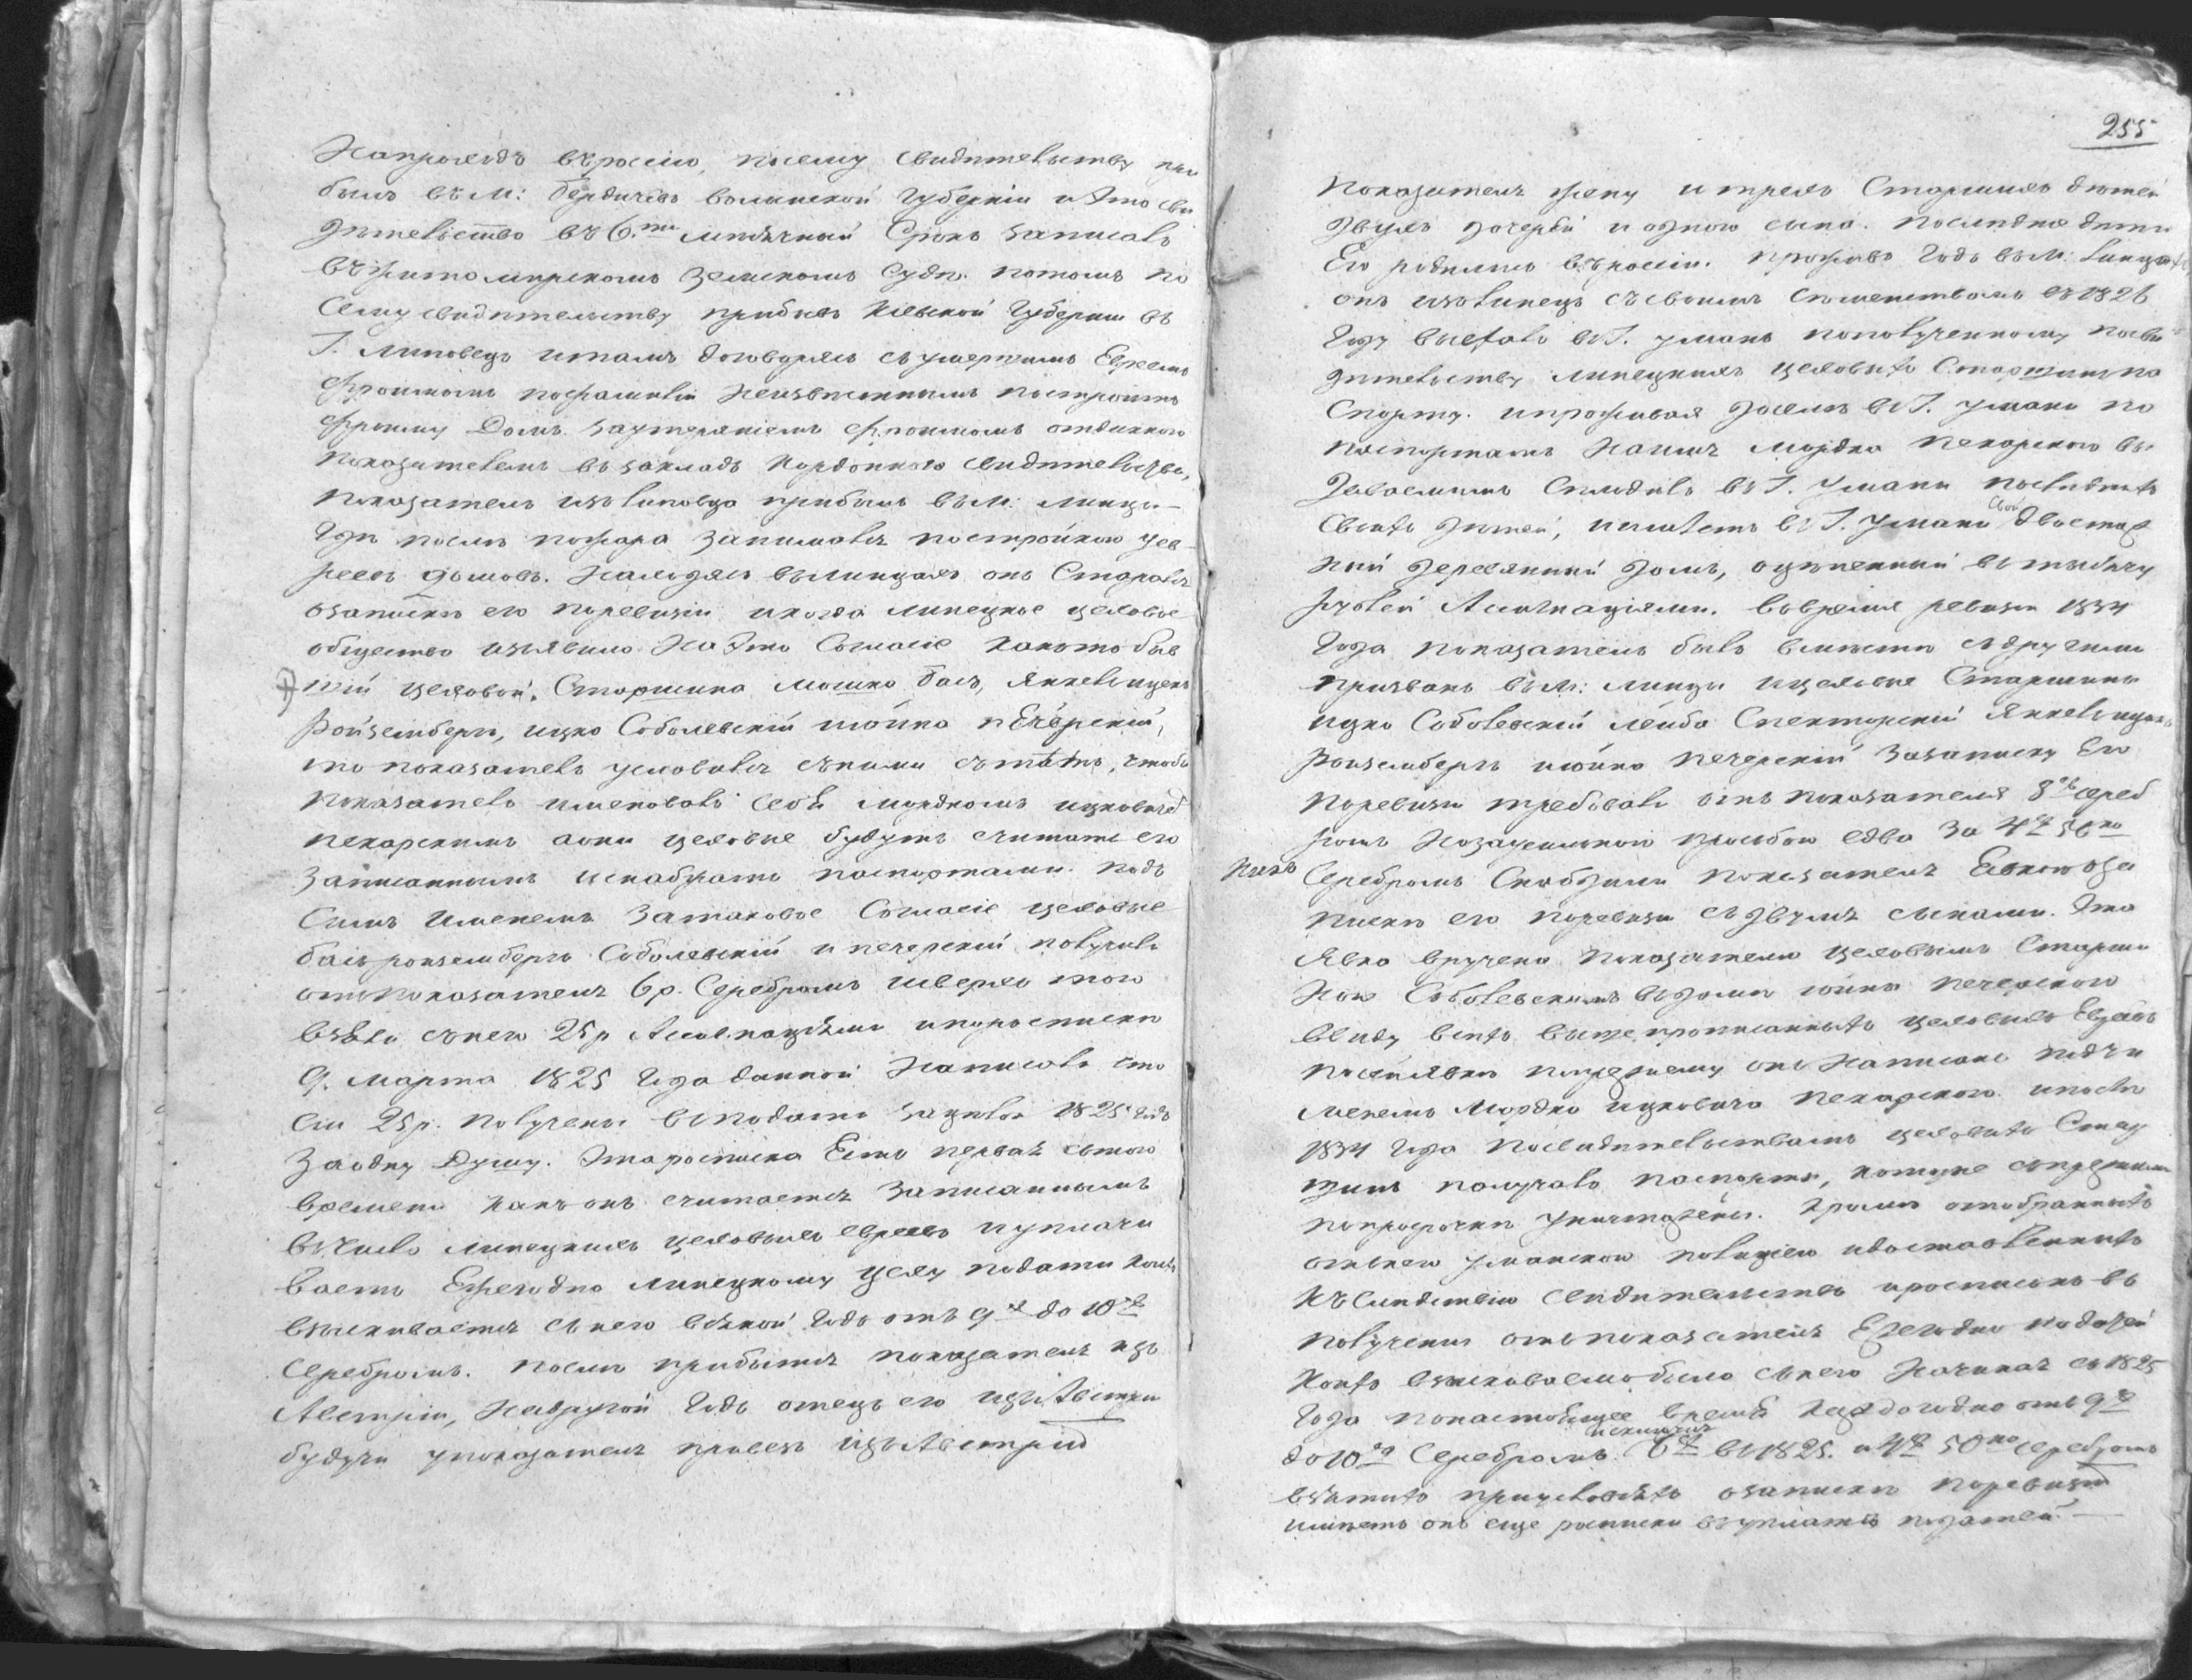 Напроездъ въроссію, посему свидѣтельству при
былъ въ М: бердичевъ волынской губерніи и Это сви
дѣтельство въ 6.ти мѣсячный Срокъ записалъ
въжитомирскомъ Земскомъ Судѣ. потомъ по
Сему свидѣтельству прибывъ Кіевской Губерніи въ
Г. Липовецъ итамъ договорясь съумершимъ Евреемъ
Фроимомъ пофамиліи Неизвѣстнымъ построить
Фроиму Домъ. Заутеряніемъ Фроимомъ отданнаго
показателемъ въ закладъ Кордоннаго свидѣтельства,
показатель изъ липовца прибылъ въ М: Линцы
Гдѣ послѣ пожара Занимался постройкою уев
реевъ домовъ. Находясь вълинцахъ онъ Старался
озапискѣ его поревизіи икогда линецкое цеховое
общество изъявило На Это Согласіе какъто быв
шій цеховой. Старшина Мошко басъ, Янкель ицекъ
Ройзенбергъ, ицко Соболевскій июйна пЕчерскій,
то показатель условился сними стѣмъ, чтобы
показатель именовалъ себя Мордкомъ ицковичемъ
пекарскимъ аони цеховые будутъ считать его
Записаннымъ иснабжать паспортами. подъ
Симъ именемъ Затаковое Согласіе цеховые
басъ ройзенбергъ Соболевскій и печерскій получили
отъ показателя 6 р. Серебромъ исверхъ того
взяли снего 25 р Ассигнаціями ипоросписки
9. Марта 1825 Года данной Написали что
Сіи 25 р. получены въподати Зацелой 1825 годъ
Заодну Душу. Эта росписка Есть первая стого
времени какъ онъ считается Записаннымъ
вчисло линецкихъ цеховыхъ евреевъ иуплачи
ваетъ Ежегодно линецкому цеху подати коихъ
взыскивается снего всякой Годъ отъ 9 р до 10 р
Серебромъ. после прибытія показателя изъ
Австріи, Надругой Годъ отецъ его изъ Австріи
будучи упоказателя привезъ изъ Австріи
255
показателя жену и трехъ Старшихъ дѣтей
двухъ дочерей и одного сына. послѣдніе дѣти
Его родились въроссіи. проживъ Годъ въ М: Линцахъ
онъ изъ линецъ съсвоимъ Семействомъ въ 1826
Году выехалъ въ Г. умань пополученному посви
дѣтельству линецкихъ цеховыхъ Старшинъ па
Спорту. ипроживая доселѣ въ Г. умани по
паспортамъ Наимя Мордка Пекарскаго вы
даваемымъ въ Г. умани послѣднихъ
Своихъ дѣтей, иимѣетъ въ Г. умани Свой двоетаж
ный деревянный домъ, оцѣненный вътысячу
рублей Ассигнаціями. Вовремя ревизіи 1834
Года показатель былъ вмѣстѣ сдругими
призванъ въ М: линцы ицеховые Старшины
ицко Соболевскій лейба Спекторскій Янкель ицекъ
Ройзенбергъ июйна печерскій Зазаписку Его
Поревизіи требовали отъ показателя 8 р сереб
ромъ Нозаусильною прозьбою едва За 4 р 50 ко
Серебромъ Снабдили показателя Евкою оза
пискѣ его поревизіи съдвумя сынами. Эта
Явка вручена показателю цеховымъ Старши
Ною Соболевскимъ въдомѣ юйны печерскаго
ввиду всехъ вышепрописанныхъ цеховыхъ Евреевъ
посейявкѣ попрежнему онъ Написанъ подъи
менемъ Мордка ицковича Пекарскаго. ипослѣ
1834 Года посвидѣтельствамъ цеховыхъ Стар
шинъ получалъ паспорты, которые спрежними
попросрочкѣ уничтожены. Кромѣ отобранныхъ
отънего уманскою полиціею идоставленныхъ
Къ Слѣдствію Свидѣтельствъ иросписокъ въ
полученіи отъпоказателя Ежегодно податей
Коихъ взыскиваемобыло снего Начиная съ 1825
Года понастоящее время каждогодно отъ 9 р
до 10 р Серебромъ. Исключая 6 р въ 1825. и 4 р 50 ко серебромъ
взятыхъ приусловіяхъ озапискѣ поревизіи
имѣетъ онъ еще росписки въуплатѣ податей.